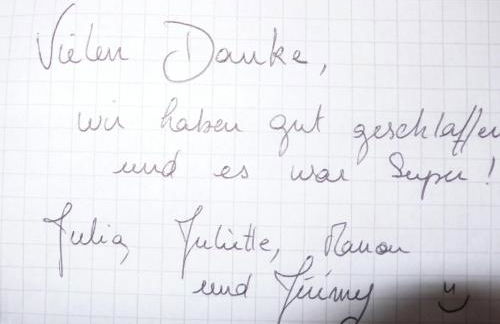 Vielen Danke,
wir haben gut geschlaffen
und es war Super!
Julia, Juliette, Manon
und Jérémy =)